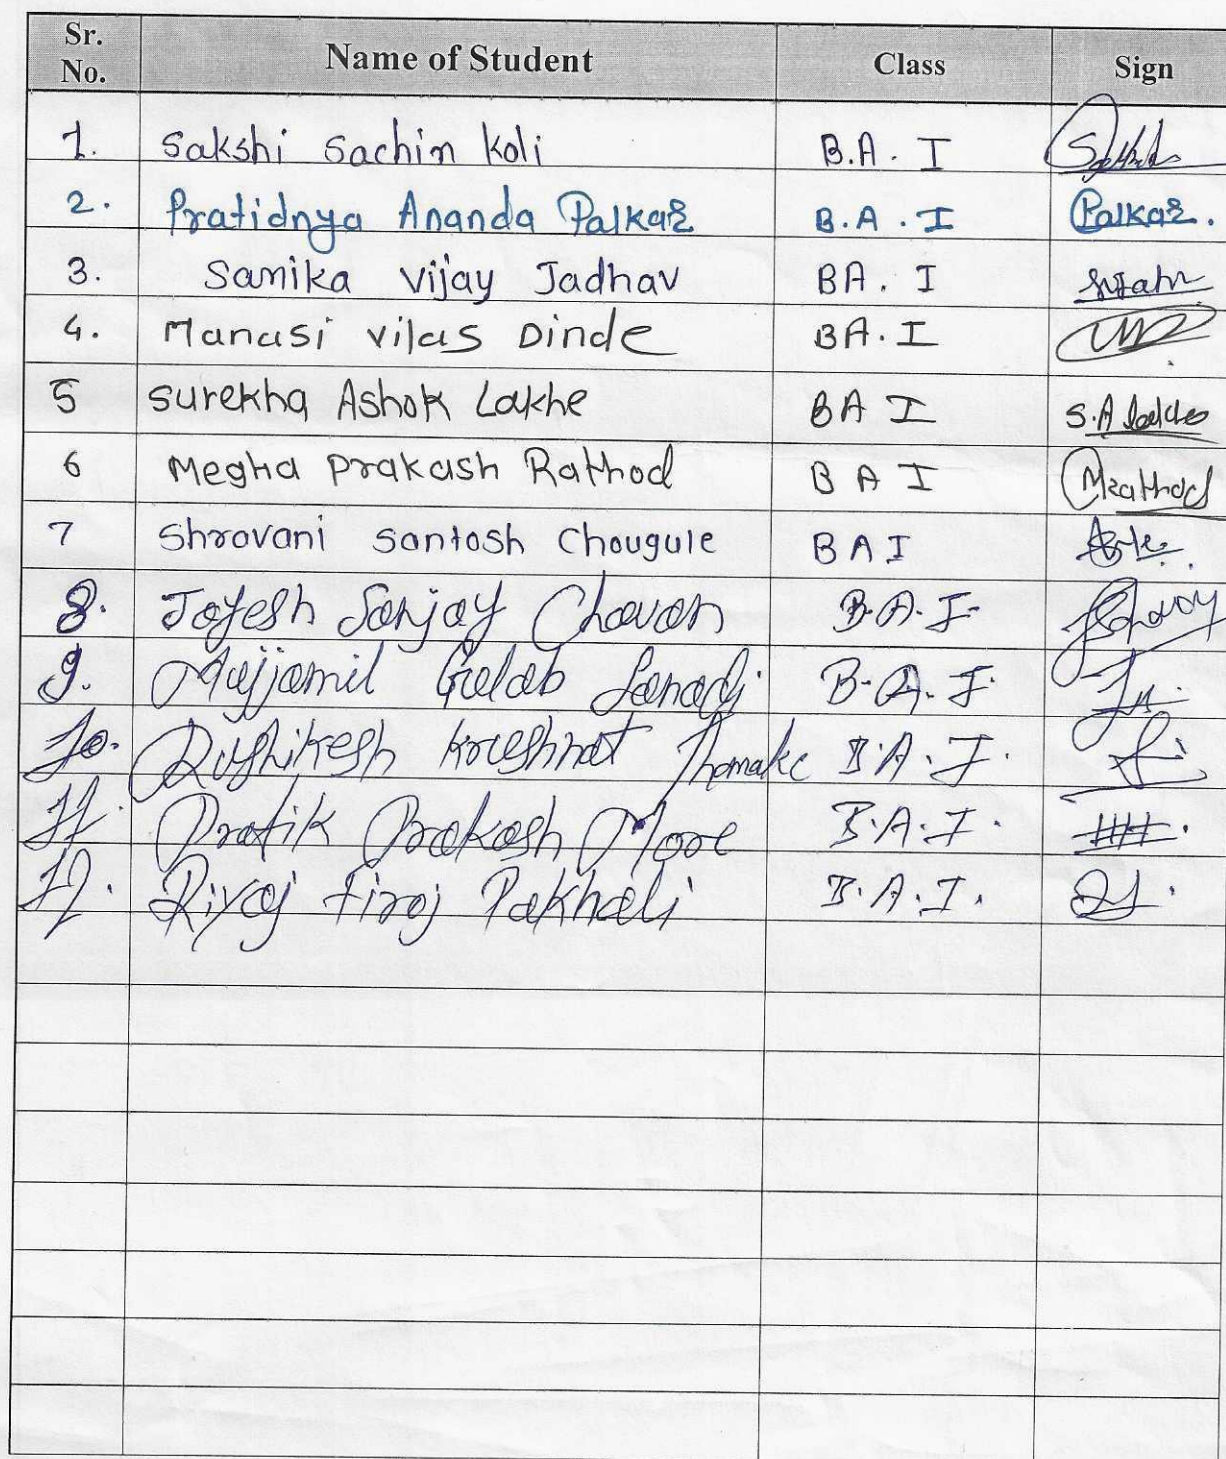 Sr. No. Name of Student Class Sign
1. Sakshi Sachin Koli B.A. I
2. Pratidnya Ananda Palkar B.A. I Palkar.
3. Samika vijay Jadhav BA. I
4. Manasi vilas Dinde BA. I
5 Surekha Ashok Lakhe BA I S.A Lakhe
6 Megha Prakash Rathod BA I MRathod
7 Shravani Santosh Chougule BAI
8. Sanjay Chavan B.A.I.
9. Mujjamil Gulab Sanadi B.A.I.
10. Rushikesh Krushnat B.A.I.
11. Pratik Prakash More B.A.I.
12. Riyaj Firoj Pakhali B.A.I.